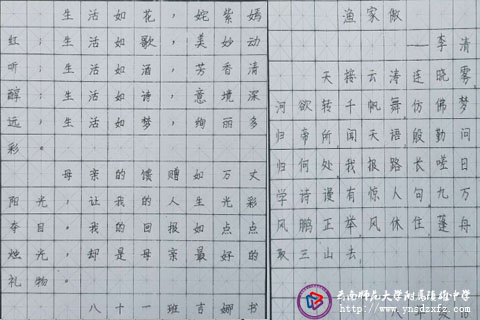 生活如花，姹紫嫣
红；生活如歌，美妙动
听；生活如酒，芳香清
醇；生活如诗，意境深
远，生活如梦，绚丽多
彩。
母亲的馈赠如万丈
阳光，让我的人生光彩
夺目。我的回报如点点
烛光，却是母亲最好的
礼物。
八十一班吉娜书
渔家傲
——李清
天接云涛连晓雾，
河欲转千帆舞。仿佛梦
归帝所闻天语，殷勤问
归何处。我报路长嗟日
学诗谩有惊人句。九万
风鹏正举。风休住，蓬舟
取三山去。
云南师范大学附属镇雄中学
www.ynsdzxfz.com